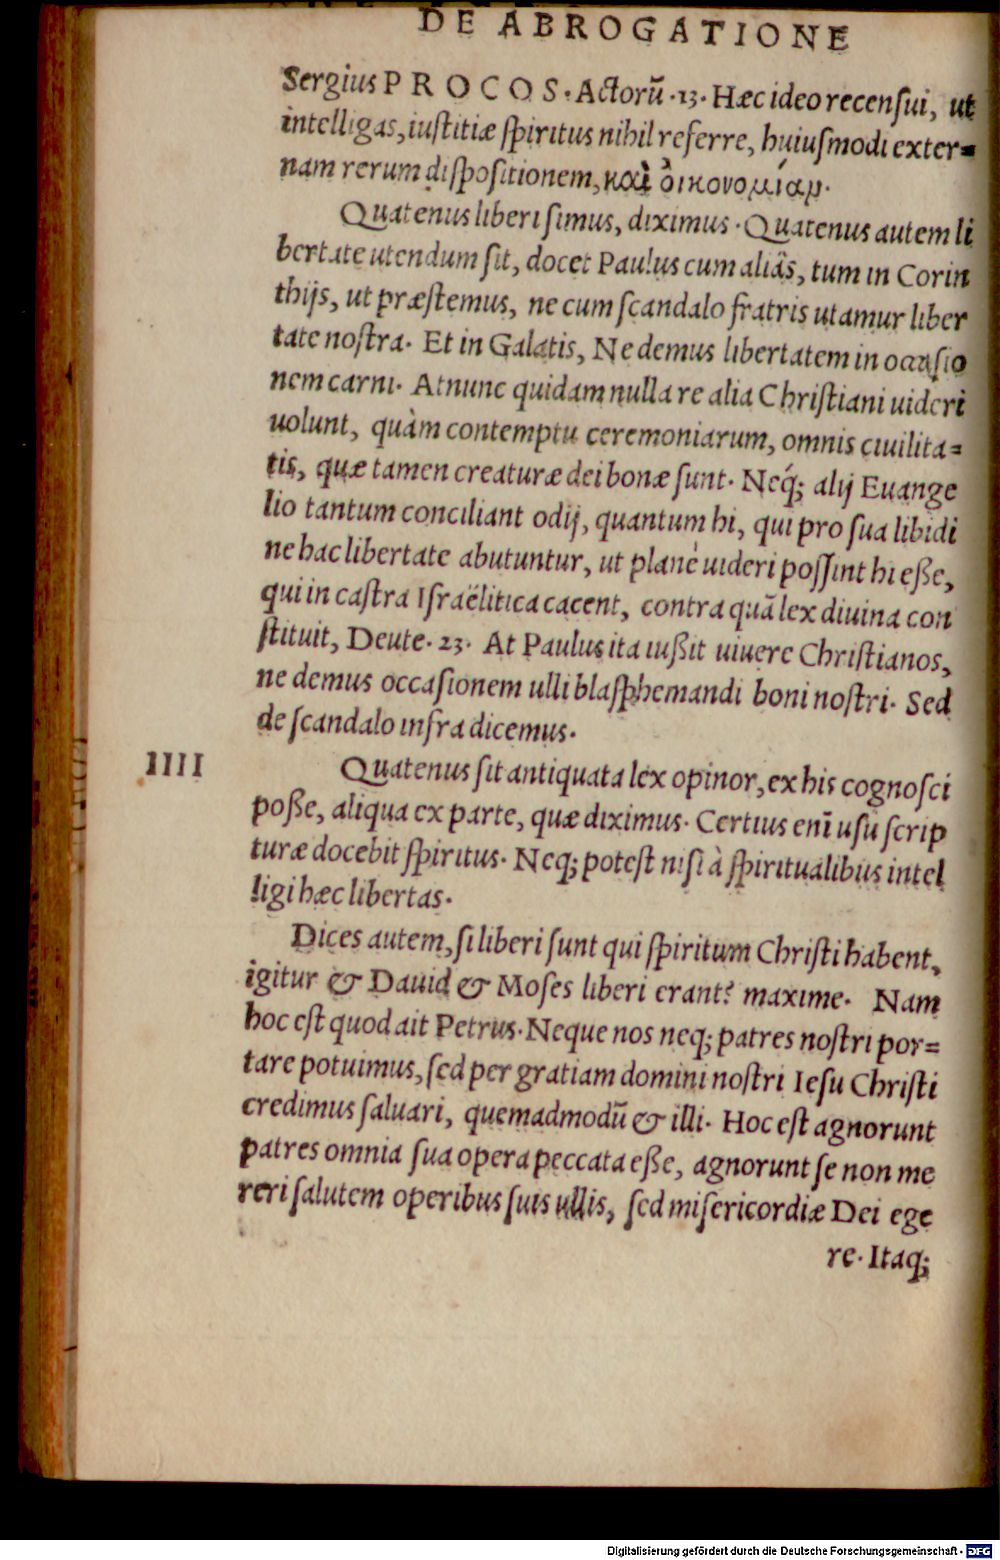 DE ABROGATIONE
Sergius PROCOS. Actorū .13. Hæc ideo recensui, ut
intelligas, iustitiæ spiritus nihil referre, huiusmodi exter=
nam rerum dispositionem, καὶ ὀικονομίαμ.
Quatenus liberi simus, diximus. Quatenus autem li
bertate utendum sit, docet Paulus cum aliâs, tum in Corin
thijs, ut præstemus, ne cum scandalo fratris utamur liber
tate nostra. Et in Galatis, Ne demus libertatem in occasio
nem carni. At nunc quidam nulla re alia Christiani uideri
uolunt, quàm contemptu ceremoniarum, omnis ciuilita=
tis, quæ tamen creaturæ dei bonæ sunt. Neq́; alij Euange
lio tantum conciliant odij, quantum hi, qui pro sua libidi
ne hac libertate abutuntur, ut planè uideri possint hi eße,
qui in castra Israëlitica cacent, contra quā lex diuina con
stituit, Deute. 23. At Paulus ita iußit uiuere Christianos,
ne demus occasionem ulli blasphemandi boni nostri. Sed
de scandalo infra dicemus.
IIII Quatenus sit antiquata lex opinor, ex his cognosci
poße, aliqua ex parte, quæ diximus. Certius enī usu scrip
turæ docebit spiritus. Neq; potest nisi à spiritualibus intel
ligi hæc libertas.
Dices autem, si liberi sunt qui spiritum Christi habent,
igitur & Dauid & Moses liberi erant? maxime. Nam
hoc est quod ait Petrus. Neque nos neq; patres nostri por=
tare potuimus, sed per gratiam domini nostri Iesu Christi
credimus saluari, quemadmodū & illi. Hoc est agnorunt
patres omnia sua opera peccata eße, agnorunt se non me
reri salutem operibus suis ullis, sed misericordiæ Dei ege
re. Itaq;
Digitalisierung gefördert durch die Deutsche Forschungsgemeinschaft - DFG